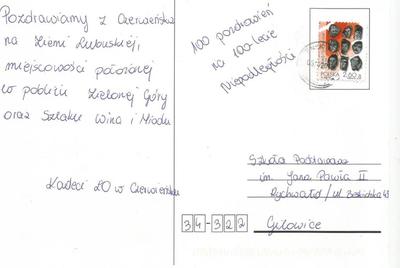 Pozdrawiamy z Czerwieńska
na Ziemi Lubuskiej,
miejscowości położonej
w pobliżu Zielonej Góry
oraz Szlaku Wina i Miodu
Kadeci LO w Czerwieńsku
100 pozdrowień
na 100-lecie
Niepodległości
POLSKA
Szkoła Podstawowa
im. Jana Pawła II
Rychwałd / ul. Beskidzka 43
34-322 Gilowice